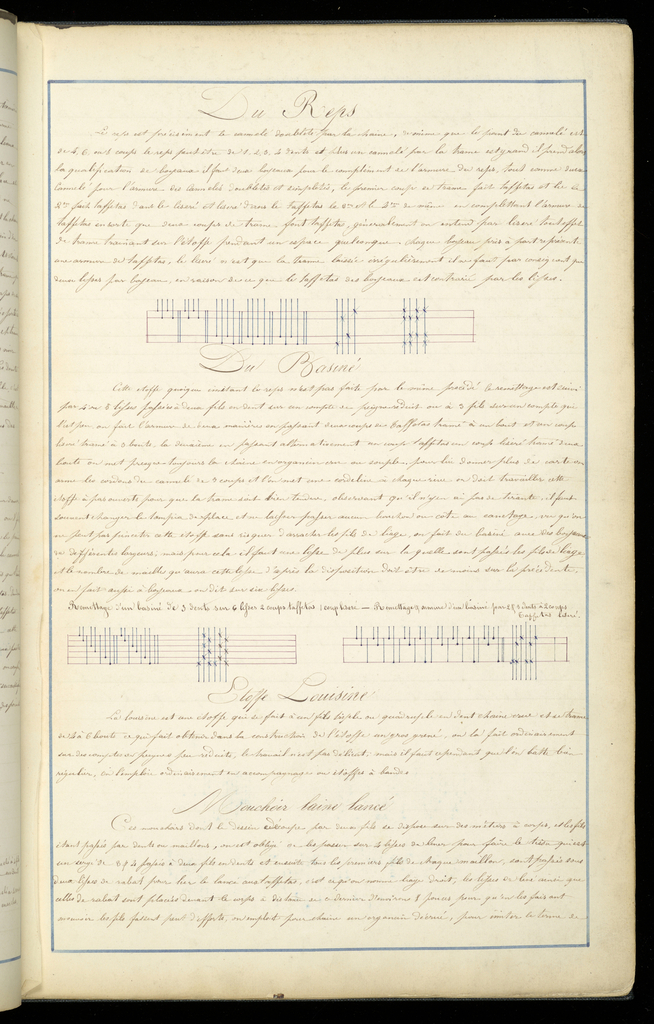 Du Reps
Le reps est précisément le cannelé doubleté par la chaine, de même que le point du cannelé est
de 4, 6, ou 8 coups le reps peut être de 1, 2, 3, 4 dents et plus un cannelé par la trame est quand il prend alors
la qualification de boyaux il faut deux boyaux pour le complément de l'armure du reps, tout comme deux
cannelé pour l'armure des cannelés doubletés et simpletés, le premier coup de trame fait taffetas et lie le
2me fait taffetas dans le liseré et liseré dans le taffetas le 3me et le 4me de même en complettant l'armure du
taffetas en sorte que deux coups de trame font taffetas, généralement on entend par liseré tout effet
de trame trainant sur l'étoffe pendant un espace quelconque chaque boyau pris à part représente
une armure de taffetas, le liseré n'est que la trame laissée irrégulièrement il en faut par conséquent que
deux lisses par boyaux, en raison de ce que le taffetas des boyaux est contrarié par les lisses.
Du Basiné
Cette étoffe quoique imitant le reps n'est pas faite par le même procédé le remettage est suivi
par 4 ou 8 lisses passées à deux fils en dent sur un compte de peigne réduit ou à 3 fils sur un compte qui
l'est peu, on fait l'armure de deux manières en passant deux coups au taffetas tramé à un bout et un coup
liseré tramé à 3 bouts, la deuxième en passant alternativement un coup taffetas un coup liseré tramé deux
bouts on met presque toujours la chaine en organsin cru ou souple pour lui donner plus de carte on
arme les cordons du cannelé de 8 coups et l'on met une cordeline à chaque rive, on doit travailler cette
étoffe à pas ouverts pour que la trame soit bien tendue, observant qu'il n'y en ai pas de tirante, il faut
souvent changer le tampia de place, et ne laisser passer aucun bouchon ou côte au canettage, vu qu'on
ne peut pas pincer cette étoffe sans risquer d'arracher les fils de liage, on fait du basiné avec des boyaux
de différentes largeurs, mais pour cela il faut une lisse de plus sur laquelle sont passés les fils de liage
et le nombre de mailles qu'aura cette lisse d'après la disposition doit être de moins sur la précédente,
on en fait aussi à boyaux, on dit sur six lisses.
Remettage d'un basiné de 3 dents sur 6 lisses 2 coups taffetas 1 coup liseré — Remettage & armure d'un basiné par 2 & 3 dents à 2 coups
taffetas liseré.
Etoffe Louisine
La louisine est une étoffe qui se fait à un fils triple ou quadruple en dent chaine crue et se trame
de 4 à 6 bouts ce qui fait obtenir dans la construction de l'étoffe un gros grené, on la fait ordinairement
sur des comptes de peignes peu réduits, le travail n'est pas délicat, mais il faut cependant que l'on batte bien
régulier, on l'emploie ordinairement en accompagnages ou étoffes à bandes
Mouchoir laine lancé
Ces mouchoirs dont le dessin découpe par deux fils se dispose sur des métiers à corps, et les fils
étant passés par dents ou maillons, on est obligé de les passer sur 4 lisses de lever pour faire le tissu qui est
un sergé de 3 & 4 passés à deux fils en dents et ensuite tous les premiers fils de chaque maillon, sont passés sous
deux lisses de rabat pour lier le lancé en taffetas, c'est ce qu'on nomme liage droit, les lisses de levé ainsi que
celles de rabat sont placées devant le corps à distance de ce dernier d'environ 8 pouces pour qu'en les faisant
mouvoir les fils fassent peu d'efforts, on emploie pour chaine un organsin décreusé, pour imiter le terne de